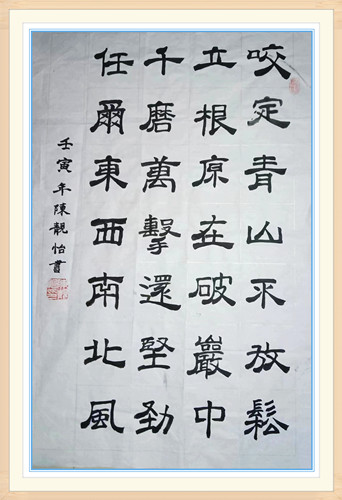 咬定青山不放鬆
立根原在破巖中
千磨萬擊還堅勁
任爾東西南北風
壬寅年陳靚怡書